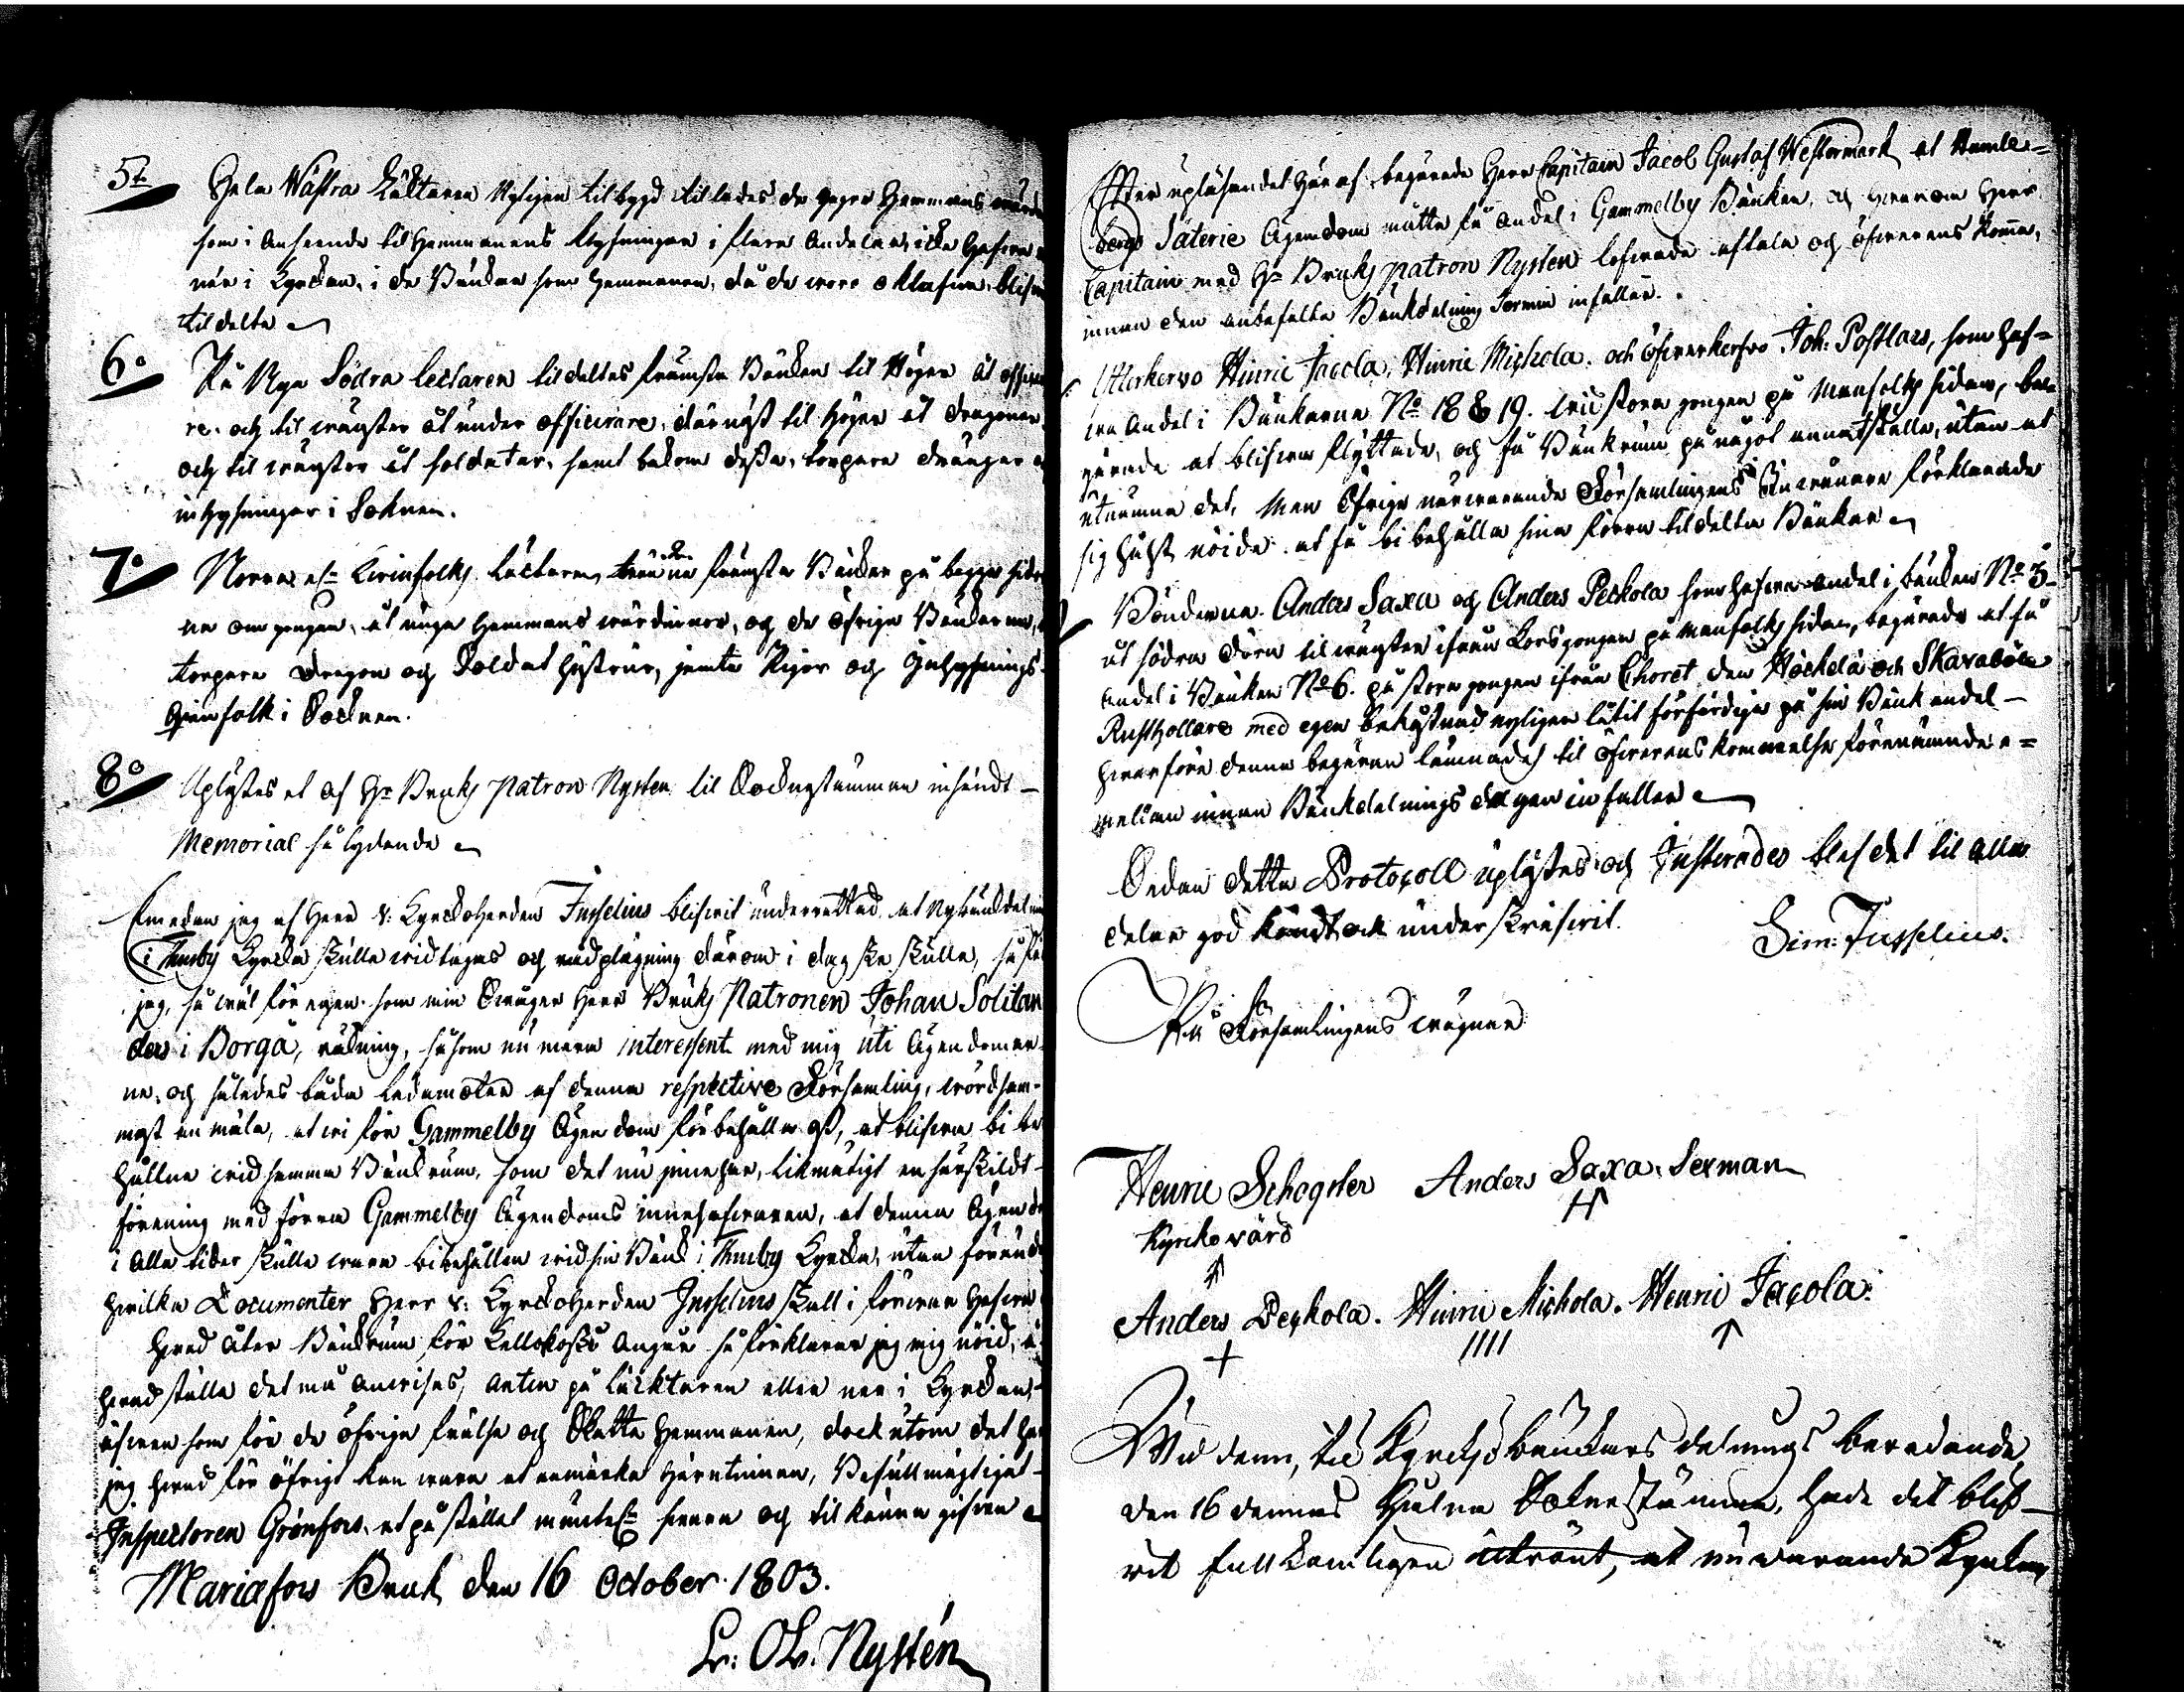 5te
Hela Wästra Läktaren Nyligen tilbygd tillades de yngre Hemmans wärdar
som i Anseende til Hemmanens klyfningar i flera Andelar, icke Hafwa
när i Kyrckan, i de Bänckar som Hemmanen, då de wore oklufne, blifwit
tildelte
6o
På Nya Södra lectaren tildeltes främsta Bäncken til Höger åt officera-
re och til wänster åt under officerare, därnäst til Höger åt Dragoner
och til wänster åt soldater, samt bakom dessa, torpare drängar och
inhysningar i Soknen.
7o
Norra eller Qwinfolks Lectaren, de främsta Bänckar på begge sidor-
na om gongen, åt unga Hemmans wärdinnor, och de öfriga Bänckarne,
torpare Dragon och Soldat Hustrur, jemte Pigor och Inhysnings-
Qwinfolk i Socknen.
8o
Uplystes et af Hr Bruks patron Nysten til Socknestämman insändt
Memorial så lydande
Emedan jag af Herr v: Kyrckoherden Jusselius blifwit underrettad at Ny bänckdelning
i Thusby Kyrcka skulle widtagas och rådplägning därom i dag ske skulle, så får
jag, så wäl för egen som min Swåger Herr Bruks Patronen Johan Solitan
ders i Borgå, räkning, såsom nu mera interessent med mig uti Ägendomar-
na, och således båda Ledamöter af denna respective Församling, wördsam-
mast anmäla, at wi för Gammelby Ägendom förbehålla oss, at blifwa bibe
hållne wid samma Bänckrum, som det nu innehar, likmätigt en särskildt
förening med förra Gammelby Ägendoms innehafwaren, at denna Ägendom
i alla tider skulle wara bibehållen wid sin Bänck i Thusby Kyrcka, utan förändring
hwilka Documenter Herr v: Kyrckoherden Jusselius skall i förwar Hafwa
Hwad åter Bänckrum för Kellokoski angår så förklarar jag mig nöid, å
hwad ställe det må anwisas, anten på läcktaren eller ner i Kyrckan,
äfwen som för de öfriga frälse och Skatte Hemmanen, dock utom det har
jag hwad för öfrigt kan wara at anmärka Härutinnan, Befullmägtigat
Inspectoren Grönfors, at på stället munteln swara och tilkänna gifwa
Mariæfors Bruk den 16 October 1803.
Lr: Ol. Nystén
Efter upläsandet häraf begärade Herr Capitain Jacob Gustaf Westermarck at Humle-
bergs Säterie Ägendom måtte få andel i Gammelby Bäncken, och hwarom Herr
Capitain med Hr Bruks patron Nysten lofwade aftala och öfwerens komma,
innan den anbefalte Bänckdelning Termin infaller.
Ollerkerwo Hinric Jacola, Hinric Michola och Öfwerkerwo Joh. Postlars, som haf-
wa Andel i Bänkarna No 18 & 19. wid stora gongen på Manfolks sidan, be-
gärade at blifwa flyttade, och få Bänkrum på något annat ställe, utan at
utnämna det. Men öfrige närwarande Församlingens Inwånare förklarade
sig häldst nöide at få bibehålla sina förra tildelta Bänkar
Bönderna Anders Saxa och Anders Peckola som hafwa andel i bäncken No 3
åt södra dörn til wänster ifrån Korsgongen på manfolks sidan, begärade at få
andel i Bäncken No 6. på stora gongen ifrån Choret, den Häckelä och Skavaböle
Rusthållare med egen bekostnad nyligen låtit förfärdiga på sin Bänk andel
hwarföre denna begäran lämnades til öfwerens kommelse förenämnde e-
mellan innan Bänckdelnings dagen infaller
Sedan detta Protocoll uplystes och Justerades blef det til alla
delar god kändt och underskrifwit.
Sim: Jusselius.
På Församlingens wägnar
Henric Schogster Anders Saxa Sexman
Kyrckowärd
Anders Peckola. Hinric Michola. Henric Jacola.
Wid denna, til Kyrckjobänckars delnings beredande
den 16 dennes hålna Sokne stämma, hade det blif-
wit fullkomligen utrönt, at nuvarande Kyrckan